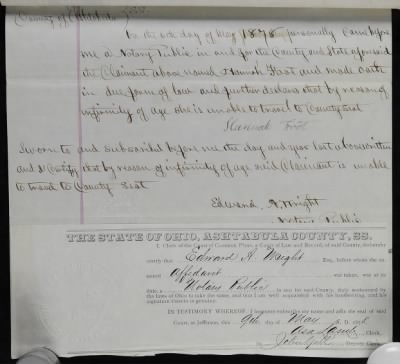 County of Ashtabula SS.
On the 9th day of May 1878 personally came before
me a Notary Public in and for the County and State aforesaid
the Claimant above named Hannah Frost and made oath
in due form of law and further declares that by reason of
infirmity of age she is unable to travel to County Seat
Hannah Frost
Sworn to and subscribed before me the day and year last above written
and I certify that by reason of infirmity of age said Claimant is unable
to travel to County Seat
Edward A. Wright
Notary Public
THE STATE OF OHIO, ASHTABULA COUNTY, SS.
I, Clerk of the Court of Common Pleas, a Court of Law and Record, of said County, do hereby
certify that Edward A. Wright Esq., before whom the
Affidavit was taken, was at its
date, a Notary Public in and for said County, duly authorized by
the laws of Ohio to take the same, and that I am well acquainted with his handwriting, and his
signature thereto is genuine.
IN TESTIMONY WHEREOF I hereunto subscribe my name and affix the seal of said
Court, at Jefferson, this 9th day of May A. D. 1878
Clerk.
Deputy Clerk.